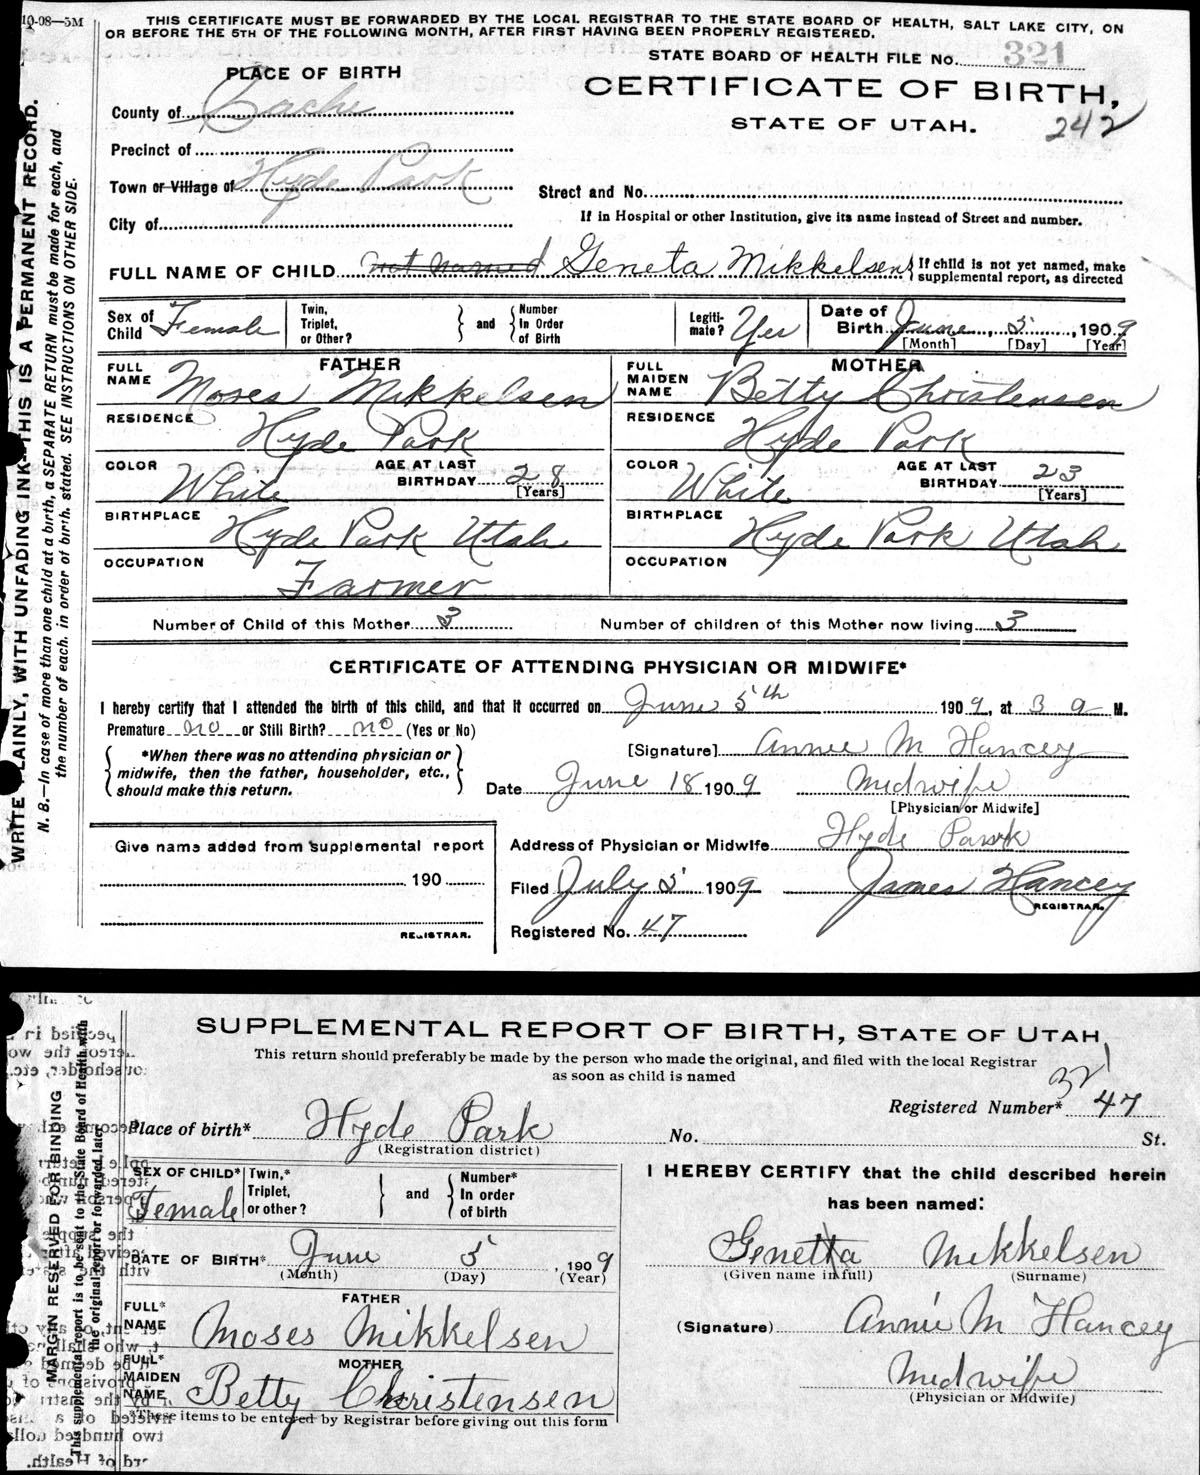 10-08—5M
THIS CERTIFICATE MUST BE FORWARDED BY THE LOCAL REGISTRAR TO THE STATE BOARD OF HEALTH, SALT LAKE CITY, ON
OR BEFORE THE 5TH OF THE FOLLOWING MONTH, AFTER FIRST HAVING BEEN PROPERLY REGISTERED.
STATE BOARD OF HEALTH FILE No. 321
PLACE OF BIRTH
CERTIFICATE OF BIRTH,
STATE OF UTAH. 242
County of Cache
Precinct of
Town or Village of Hyde Park
Street and No.
City of
If in Hospital or other Institution, give its name instead of Street and number.
FULL NAME OF CHILD not named Geneta Mikkelsen { If child is not yet named, make
supplemental report, as directed
Sex of Child Female Twin, Triplet, or Other? } and { Number In Order of Birth Legiti-mate? Yes Date of Birth June 5, 1909
[Month] [Day] [Year]
FATHER MOTHER
FULL NAME Moses Mikkelsen FULL MAIDEN NAME Betty Christensen
RESIDENCE Hyde Park RESIDENCE Hyde Park
COLOR White AGE AT LAST BIRTHDAY 28 [Years] COLOR White AGE AT LAST BIRTHDAY 23 [Years]
BIRTHPLACE Hyde Park Utah BIRTHPLACE Hyde Park Utah
OCCUPATION Farmer OCCUPATION
Number of Child of this Mother 3 Number of children of this Mother now living 3
CERTIFICATE OF ATTENDING PHYSICIAN OR MIDWIFE*
I hereby certify that I attended the birth of this child, and that it occurred on June 5th 1909, at 3 a M.
Premature no or Still Birth? no (Yes or No)
*When there was no attending physician or
midwife, then the father, householder, etc.,
should make this return.
[Signature] Annie M Hancey
Date June 18 1909 Midwife
[Physician or Midwife]
Give name added from supplemental report
190
REGISTRAR.
Address of Physician or Midwife Hyde Park
Filed July 5 1909 James Hancey
REGISTRAR.
Registered No. 47
WRITE PLAINLY, WITH UNFADING INK—THIS IS A PERMANENT RECORD.
N. B.—In case of more than one child at a birth, a SEPARATE RETURN must be made for each, and
the number of each, in order of birth, stated. SEE INSTRUCTIONS ON OTHER SIDE.
SUPPLEMENTAL REPORT OF BIRTH, STATE OF UTAH
This return should preferably be made by the person who made the original, and filed with the local Registrar
as soon as child is named
321
Registered Number* 47
Place of birth* Hyde Park No. St.
(Registration district)
SEX OF CHILD* Female Twin,* Triplet, or other? } and { Number* In order of birth
DATE OF BIRTH* June 5, 1909
(Month) (Day) (Year)
FATHER
FULL* NAME Moses Mikkelsen
MOTHER
FULL* MAIDEN NAME Betty Christensen
*These items to be entered by Registrar before giving out this form
I HEREBY CERTIFY that the child described herein
has been named:
Genetta Mikkelsen
(Given name in full) (Surname)
(Signature) Annie M Hancey
Midwife
(Physician or Midwife)
MARGIN RESERVED FOR BINDING
This supplemental report is to be sent to the State Board of Health with
the original report or forwarded later